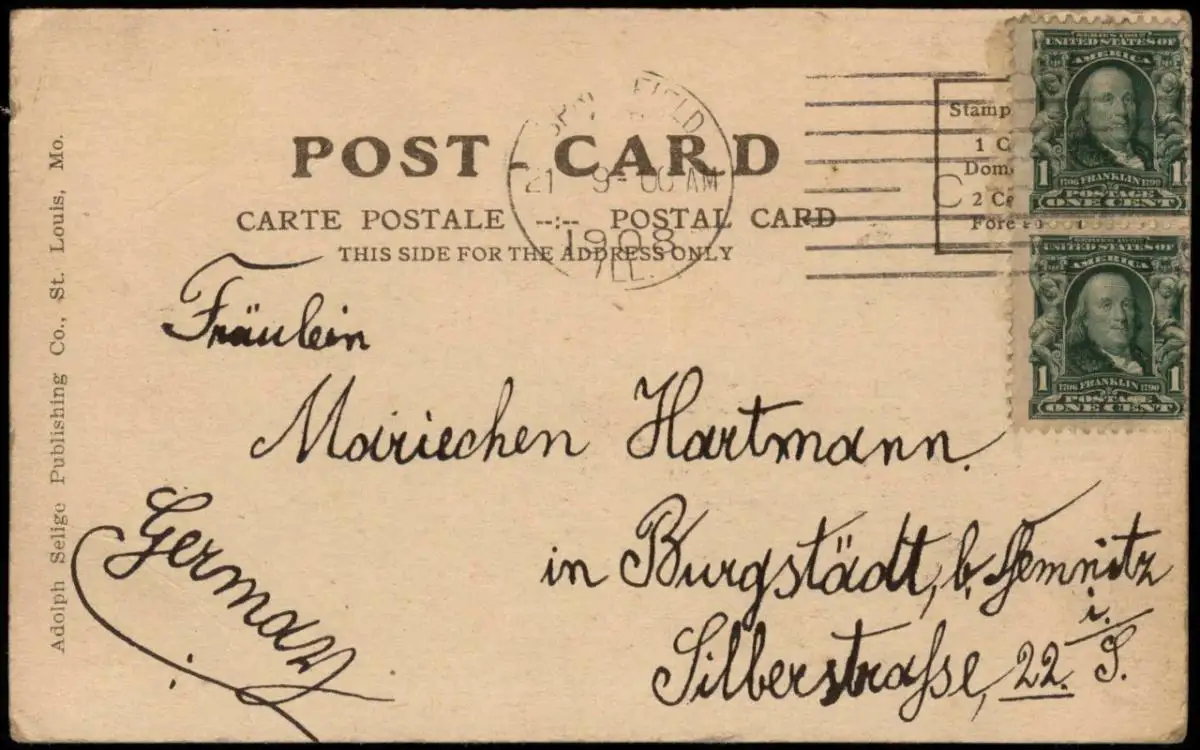 POST-CARD
CARTE POSTALE --:-- POSTAL CARD
THIS SIDE FOR THE ADDRESS ONLY
21 9-00 AM
1908
Stamp
1 C
Dom
2 Ce
Fore
SERIES 1902
UNITED STATES OF
AMERICA
1 1
1706 FRANKLIN 1790
POSTAGE
ONE CENT
SERIES 1902
UNITED STATES OF
AMERICA
1 1
1706 FRANKLIN 1790
POSTAGE
ONE CENT
Adolph Selige Publishing Co., St. Louis, Mo.
Fräulein
Mariechen Hartmann.
in Burgstädt, b. Chemnitz
i. S.
Silberstraße, 22.
Germany